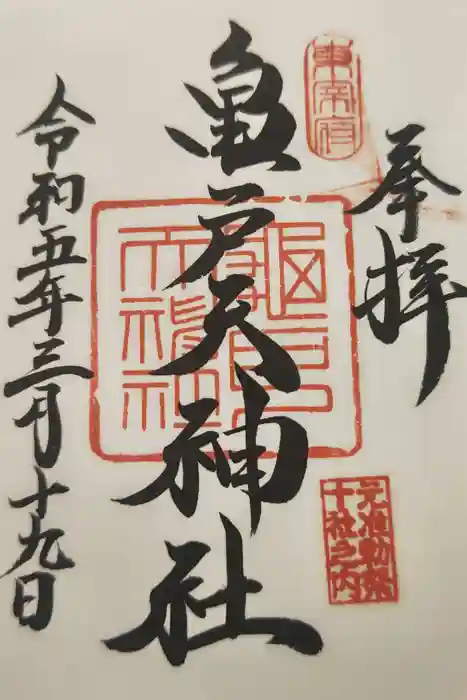 奉拝
東宰府
亀戸天神社
元准勅祭
十社之内
令和五年三月十九日